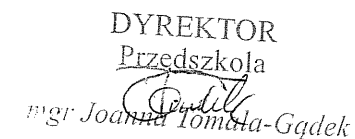 DYREKTOR
Przedszkola
mgr Joanna Tomala-Gądek